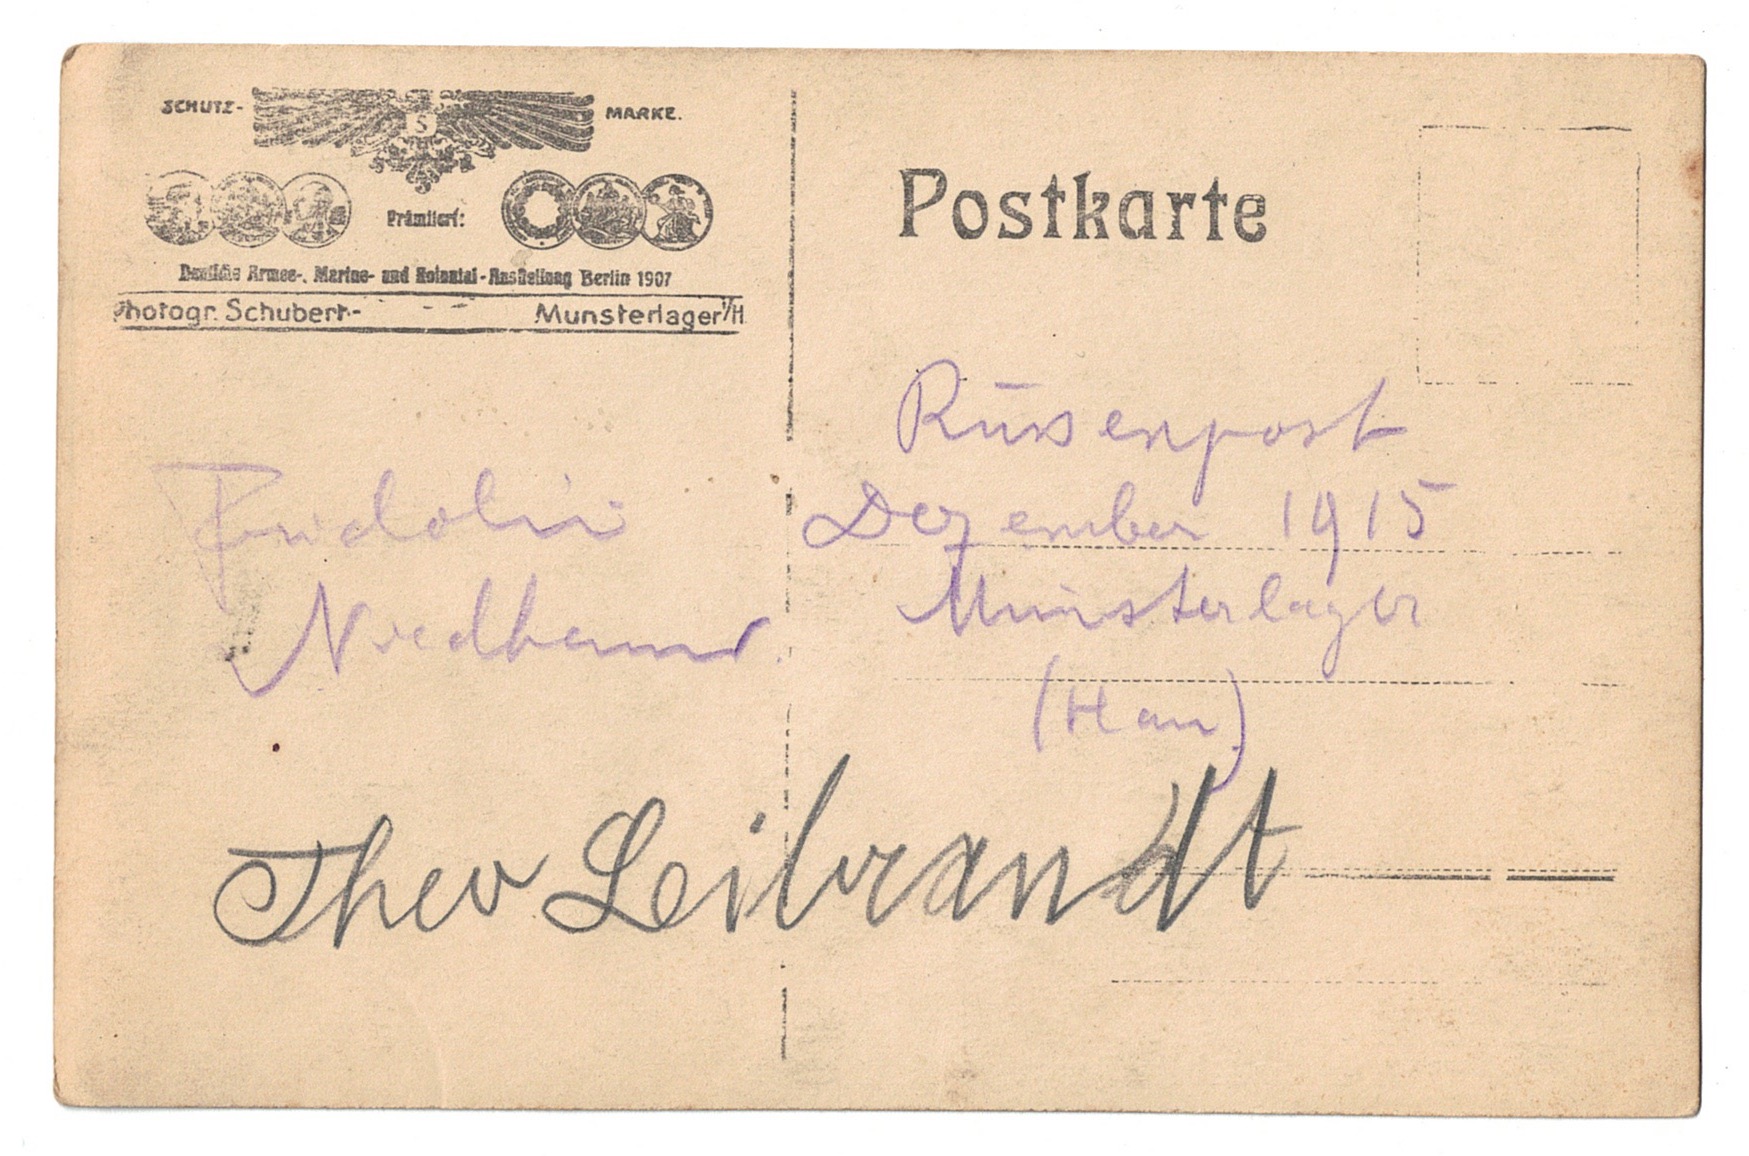 SCHUTZ- S MARKE.
Prämiiert:
Deutsche Armee-, Marine- und Kolonial-Ausstellung Berlin 1907
Photogr. Schubert- Munsterlager i/H
Postkarte
Russenpost
Dezember 1915
Munsterlager
(Han)
Fridolin
Theo Leibrandt